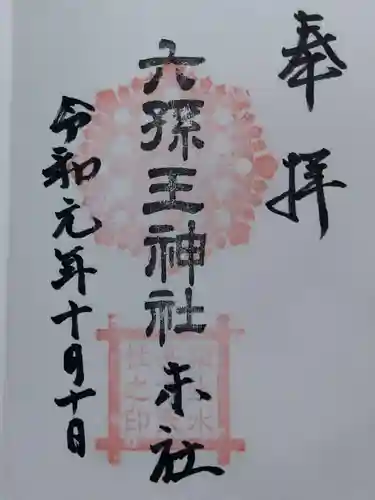 奉拝
六孫王神社
末社
令和元年十月十日